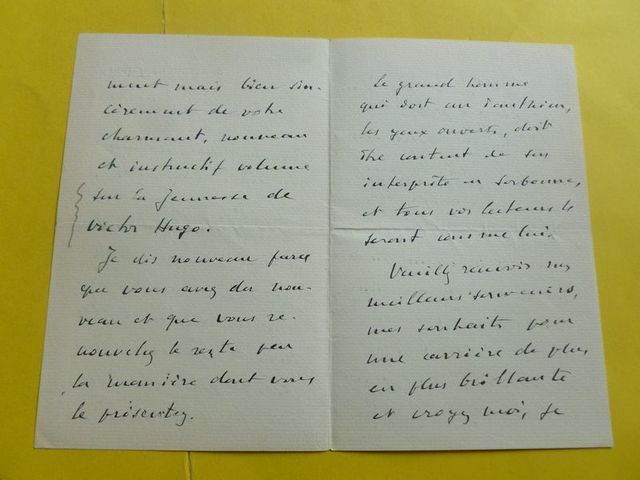 ment mais bien sin-
cèrement de votre
charmant, nouveau
et instructif volume
sur la Jeunesse de
Victor Hugo.
Je dis nouveau parce
que vous avez du nou-
veau et que vous re-
nouvelez le reste par
la manière dont vous
le présentez.
Le grand homme
qui dort au Panthéon,
les yeux ouverts, doit
être content de son
interprète en Sorbonne,
et tous vos lecteurs le
seront comme lui.
Veuillez recevoir mes
meilleurs souvenirs,
mes souhaits pour
une carrière de plus
en plus brillante
et croyez moi, je